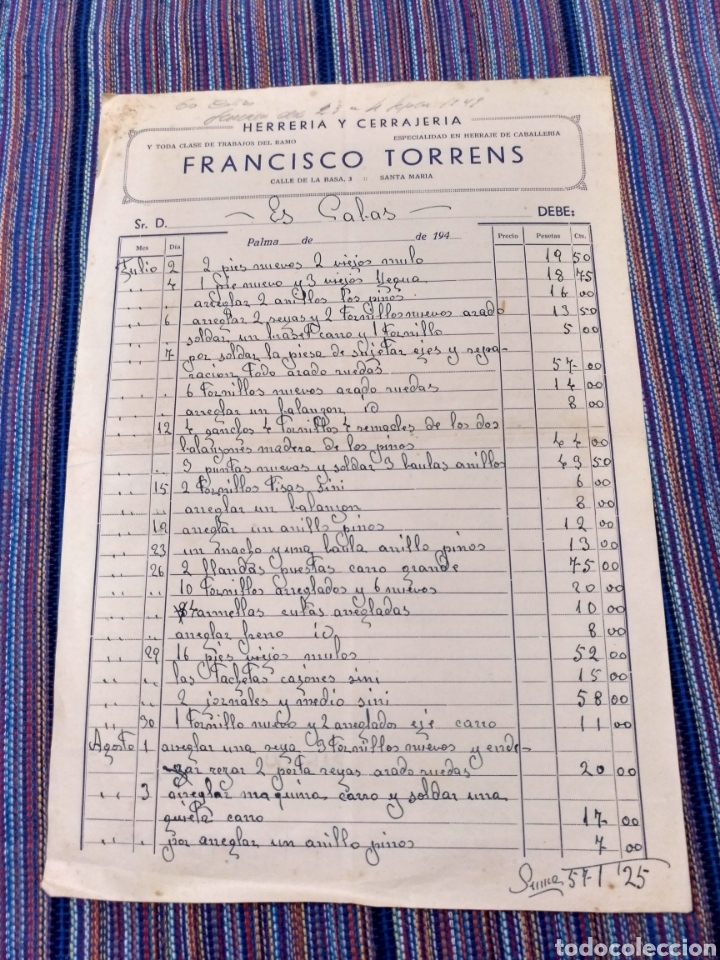 HERRERIA Y CERRAJERIA
Y TODA CLASE DE TRABAJOS DEL RAMO ESPECIALIDAD EN HERRAJE DE CABALLERIA
FRANCISCO TORRENS
CALLE DE LA BASA, 3 SANTA MARIA
Sr. D. Es Cabas DEBE:
Mes Día Palma de de 194 Precio Pesetas Cts.
Julio 2 2 pies nuevos 2 viejos mulo 19 50
,, 4 1 pie nuevo y 3 viejos Yegua 18 75
arreglar 2 anillos los pinos 16 00
,, 6 arreglar 2 reyas y 2 tornillos nuevos arado 13 50
soldar un carro y 1 tornillo 5 00
,, 7 por soldar la piesa de sujetar ejes y repa-
racion todo arado ruedas 57 00
6 tornillos nuevos arado ruedas 14 00
arreglar un balanzon id 8 00
,, 12 4 ganchos 4 tornillos 4 remaches de los dos
balanzones madera de los pinos 44 00
,, ,, 3 puntas nuevas y soldar 3 baulas anillos 43 50
,, 15 2 tornillos sini 6 00
,, ,, arreglar un balanzon 8 00
,, 19 arreglar un anillo pinos 12 00
,, 23 un macho y una baula anillo pinos 13 00
,, 26 2 llandas puestas carro grande 75 00
,, ,, 10 tornillos arreglados y 6 nuevos 20 00
,, ,, armellas arregladas 10 00
,, ,, arreglar freno id 8 00
,, 29 16 pies viejos mulos 52 00
,, ,, las tachetas cajones sini 15 00
,, ,, 2 jornales y medio sini 58 00
,, 30 1 tornillo nuevo y 2 arreglados eje carro 11 00
Agosto 1 arreglar una reya 3 tornillos nuevos y ende-
rezar 2 porta reyas arado ruedas 20 00
,, 3 arreglar maquina carro y soldar una
carro 17 00
,, ,, por arreglar un anillo pinos 7 00
Suma 571 25
todocoleccion